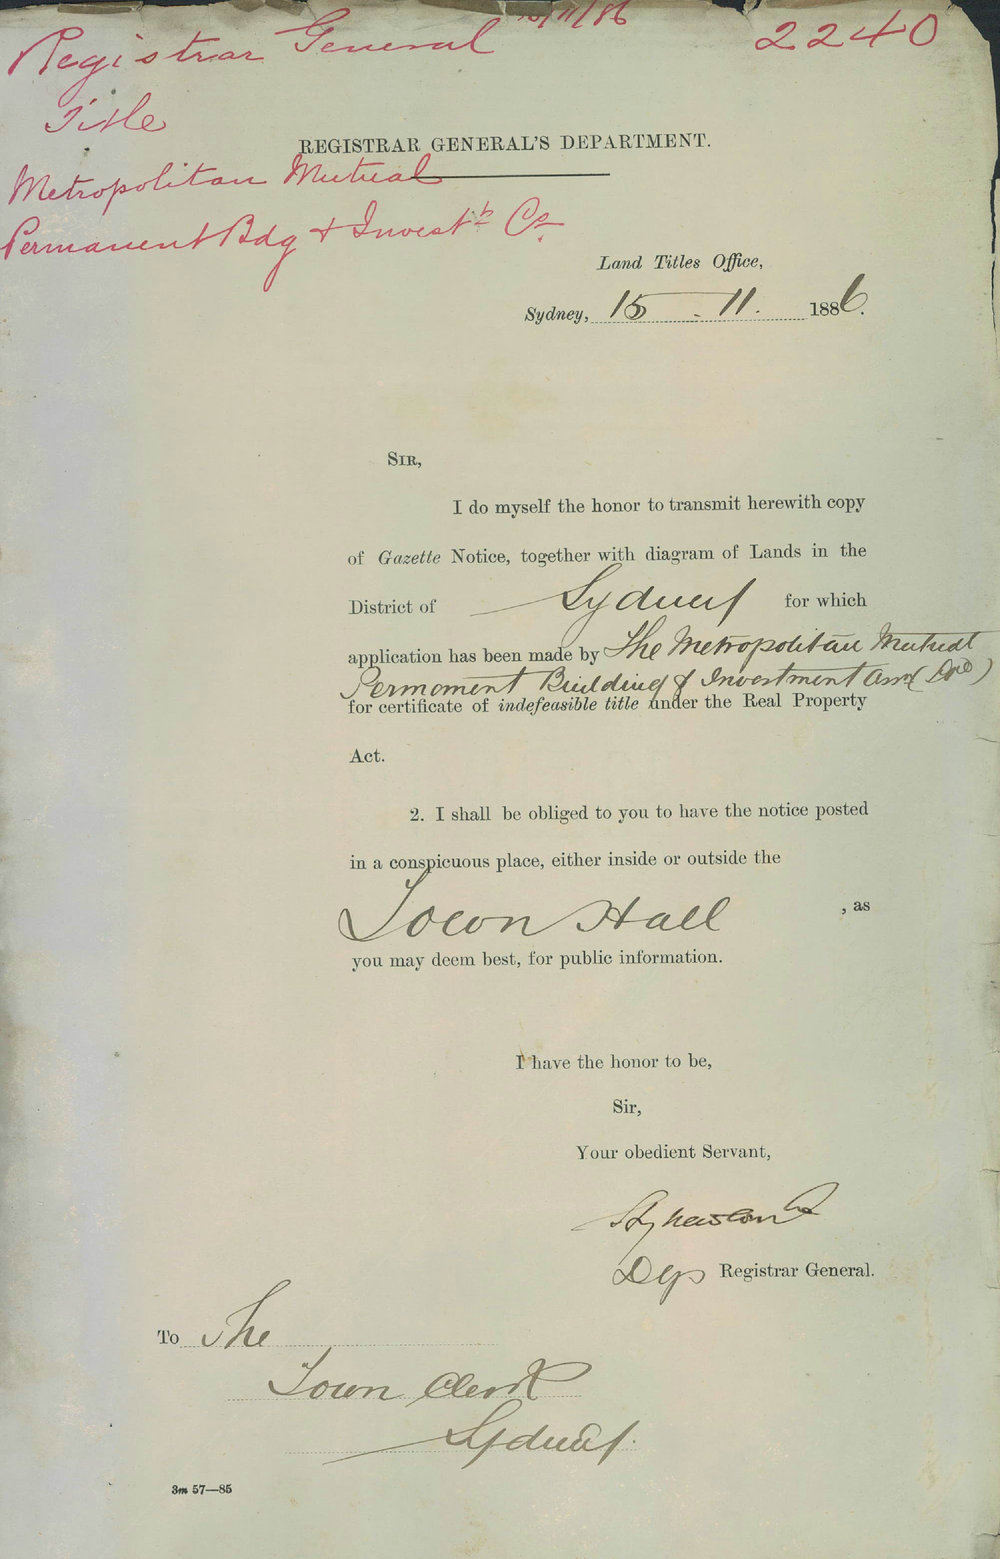 15/11/86
2240
Registrar General
Title
Metropolitan Mutual
Permanent Bdg & Invest.t Co.
REGISTRAR GENERAL'S DEPARTMENT.
Land Titles Office,
Sydney, 15 - 11. 1886.
SIR,
I do myself the honor to transmit herewith copy
of Gazette Notice, together with diagram of Lands in the
District of Sydney for which
application has been made by The Metropolitan Mutual
Permanent Building & Investment Assn
for certificate of indefeasible title under the Real Property
Act.
2. I shall be obliged to you to have the notice posted
in a conspicuous place, either inside or outside the
Town Hall , as
you may deem best, for public information.
I have the honor to be,
Sir,
Your obedient Servant,
Dep Registrar General.
To The
Town Clerk
Sydney.
3m 57—85